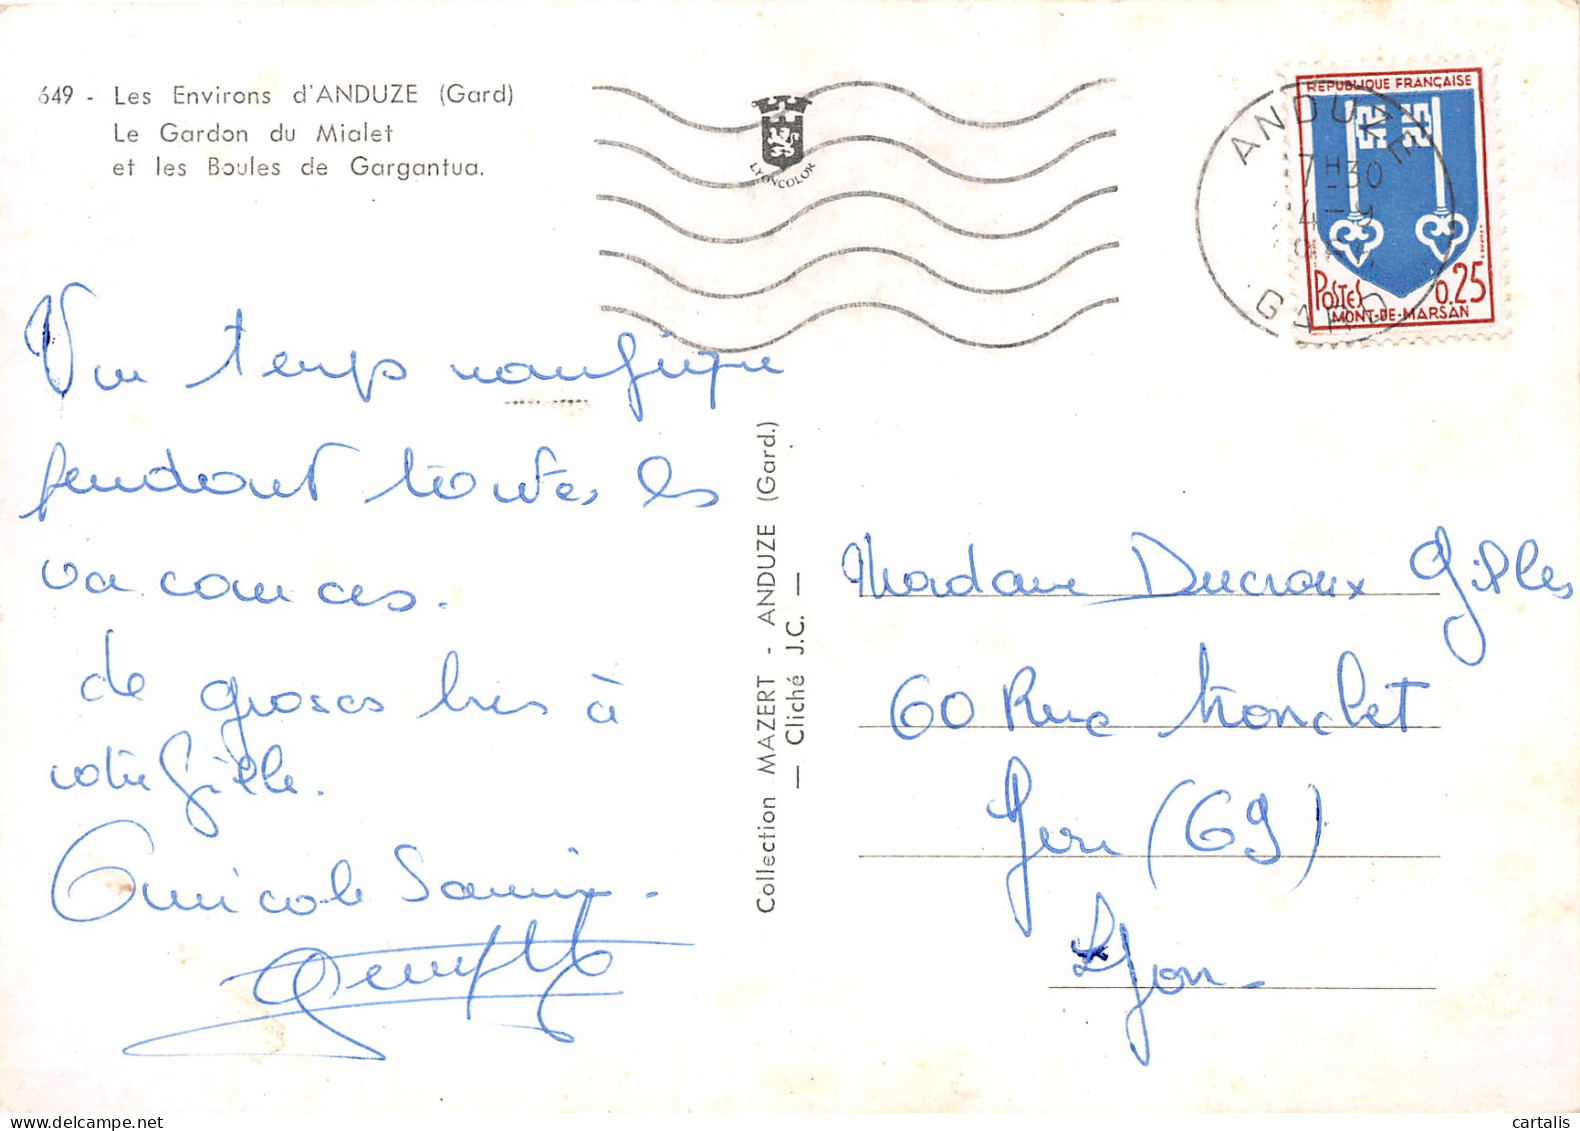 649 - Les Environs d'ANDUZE (Gard)
Le Gardon du Mialet
et les Boules de Gargantua.
LYONCOLOR
ANDUZE
7H30
4-9
GARD
REPUBLIQUE FRANÇAISE
POSTES
0.25
MONT-DE-MARSAN
Un temps magnifique
pendant toutes les
vacances.
de grosses bises à
votre Gilles.
Amical Souvenir.
Collection MAZERT - ANDUZE (Gard.)
— Cliché J.C. —
Madame Ducroux Gilles
60 Rue
(69)
Lyon-
cartalis